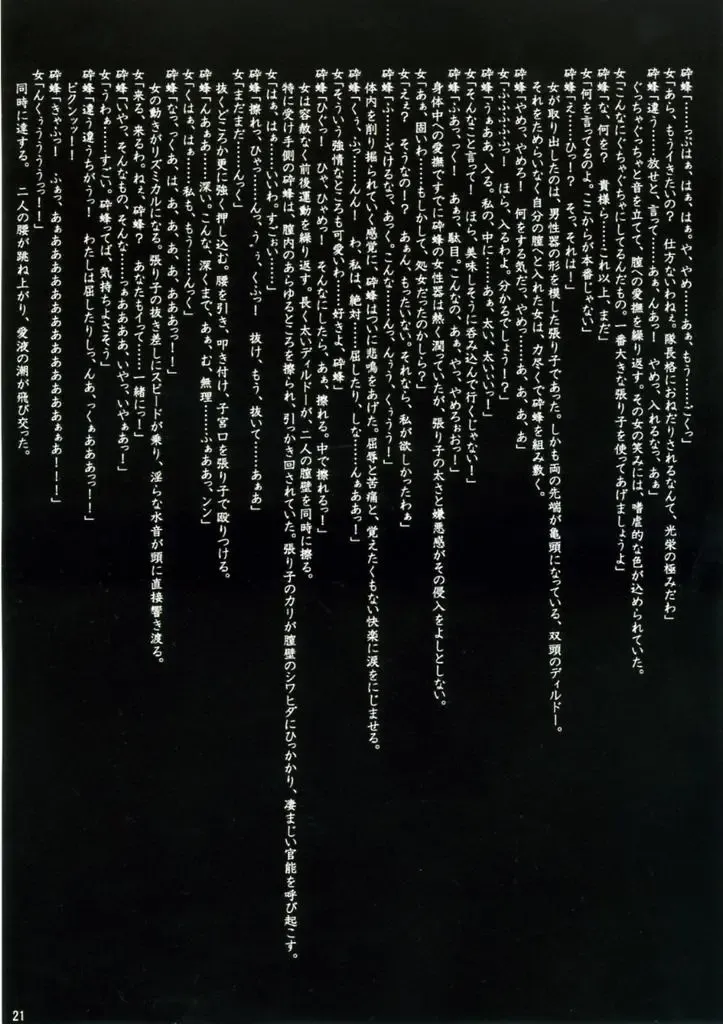 砕蜂「……っぷはぁ、はぁ、はぁ。や、やめ……あぁ、もう……ごくっ」
女「あら、もうイきたいの? 仕方ないわねぇ。隊長格におねだりされるなんて、光栄の極みだわ」
砕蜂「違う? 放せと、言って……あぁ、んあっー やめっ、入れるなっ、あぁ」
ぐっちゃぐっちゃと音を立てて、膣への愛撫を繰り返す。その女の笑みには、嗜虐的な色が込められていた。
女「こんなにぐちゃぐちゃにしてるんだもの。一番大きな張り子を使ってあげましょうよ」
砕蜂「な、何を? 貴様ら……これ以上、まだ」
女「何を言ってるのよ。ここからが本番じゃない」
砕蜂「え……ひっー? そっ、それは!」
女が取り出したのは、男性器の形を模した張り子であった。しかも両の先端が亀頭になっている、双頭のディルドー。
それをためらいなく自分の膣へと入れた女は、力尽くで砕蜂を組み敷く。
砕蜂「やめっ、やめろ! 何をする気だっ、やめっ……あ、あ、あ」
女「ふふふふふっー ほら、入るわよ。分かるでしょう!?」
砕蜂「うぁああ、入る。私の、中に……あぁ、太い、太いいっー」
女「そんなこと言って! ほら、美味しそうに呑み込んで行くじゃない!」
砕蜂「ふぁっっく! あぁっ、駄目。こんなの、あぁ、や、やめるぉおっー」
身体中への愛撫ですでに砕蜂の女性器は熱く潤っていたが、張り子の太さと嫌悪感がその侵入をよしとしない。
女「あぁ、固いわ……もしかして、処女だったのかしら?」
女「ええ? そうなの!? あぁん、もったいない。それなら、私が欲しかったわぁ」
砕蜂「ふ……ざけるなっ、あっく。こんな……んっ、んうぅ、くぅううー」
体内を削り掘られていく感覚に、砕蜂はついに悲鳴をあげた。屈辱と苦痛と、覚えたくもない快楽に涙をにじませる。
砕蜂「くぅ、ふっーんん! わ、私は、絶対……屈したり、しな……んぁああっー」
女「そういう強情なところも可愛いわ…… 好きよ、砕蜂」
砕蜂「ひぐっー ひゃ、ひゃめっー そんなにしたら、あぁ、擦れる。中で擦れるっー」
女は容赦なく前後運動を繰り返す。長く太いディルドーが、二人の膣壁を同時に擦る。
特に受け手側の砕蜂は、膣内のあらゆるところを擦られ、引っかき回されていた。張り子のカリが膣壁のシワヒダにひっかかり、凄まじい官能を呼び起こす。
女「はぁ、はぁ……いいわ。すごぉい……」
砕蜂「擦れっ、ひゃっ……んっ、うぅ、くふっー 抜け、もう、抜いて……あぁあ」
女「まだまだ……んっく」
抜くどころか更に強く押し込む。腰を引き、叩き付け、子宮口を張り子で殴りつける。
砕蜂「んあぁあ……深い。こんな、深くまで、あぁ、む、無理……ふぁああっ、ンン」
女「くはぁ、はぁ……私も、もう……んっく」
砕蜂「なっ、っくあ、は、あ、あ、あ、あああっー!」
女の動きがリズミカルになる。張り子の抜き差しにスピードが乗り、淫らな水音が頭に直接響き渡る。
女「来る、来るわ。ねぇ、砕蜂? あなたもイって……一緒にっー」
砕蜂「いや、そんなもの、そんな……ぁああああ、いやっ、いやぁあっー」
女「うわぁ……すごい。砕蜂ってば、気持ちよさそう」
砕蜂「違、違うちがうっー わたしは屈したりしっ、んあ、っくぁあああっー!」
ビクンッッー!
砕蜂「きゃふっー ふぁっ、あぁああああああああああああぁぁあー!!」
女「んくぅううううっっー!!」
同時に達する。 二人の腰が跳ね上がり、愛液の潮が飛び交った。
21